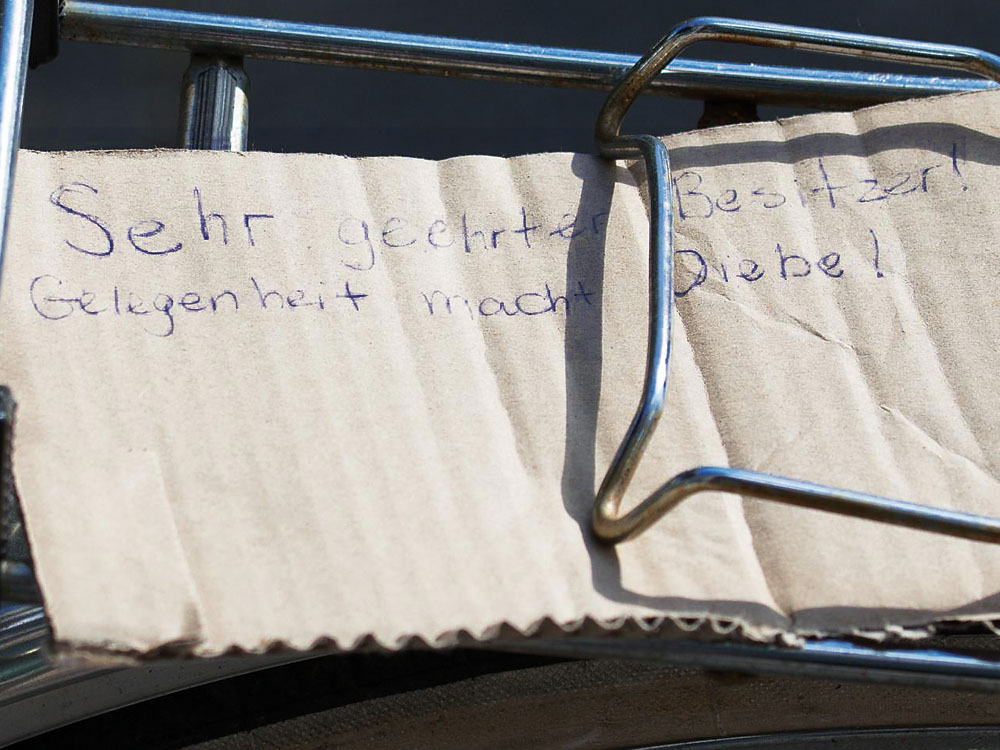 Sehr geehrter Besitzer!
Gelegenheit macht Diebe!